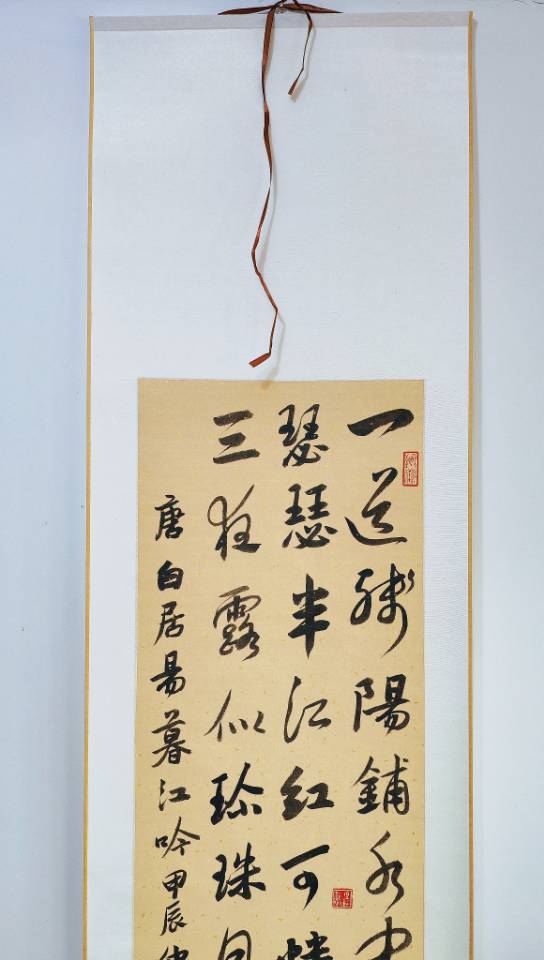 一道殘陽鋪水中
瑟瑟半江紅可憐
三夜露似珍珠月
唐白居易暮江吟甲辰